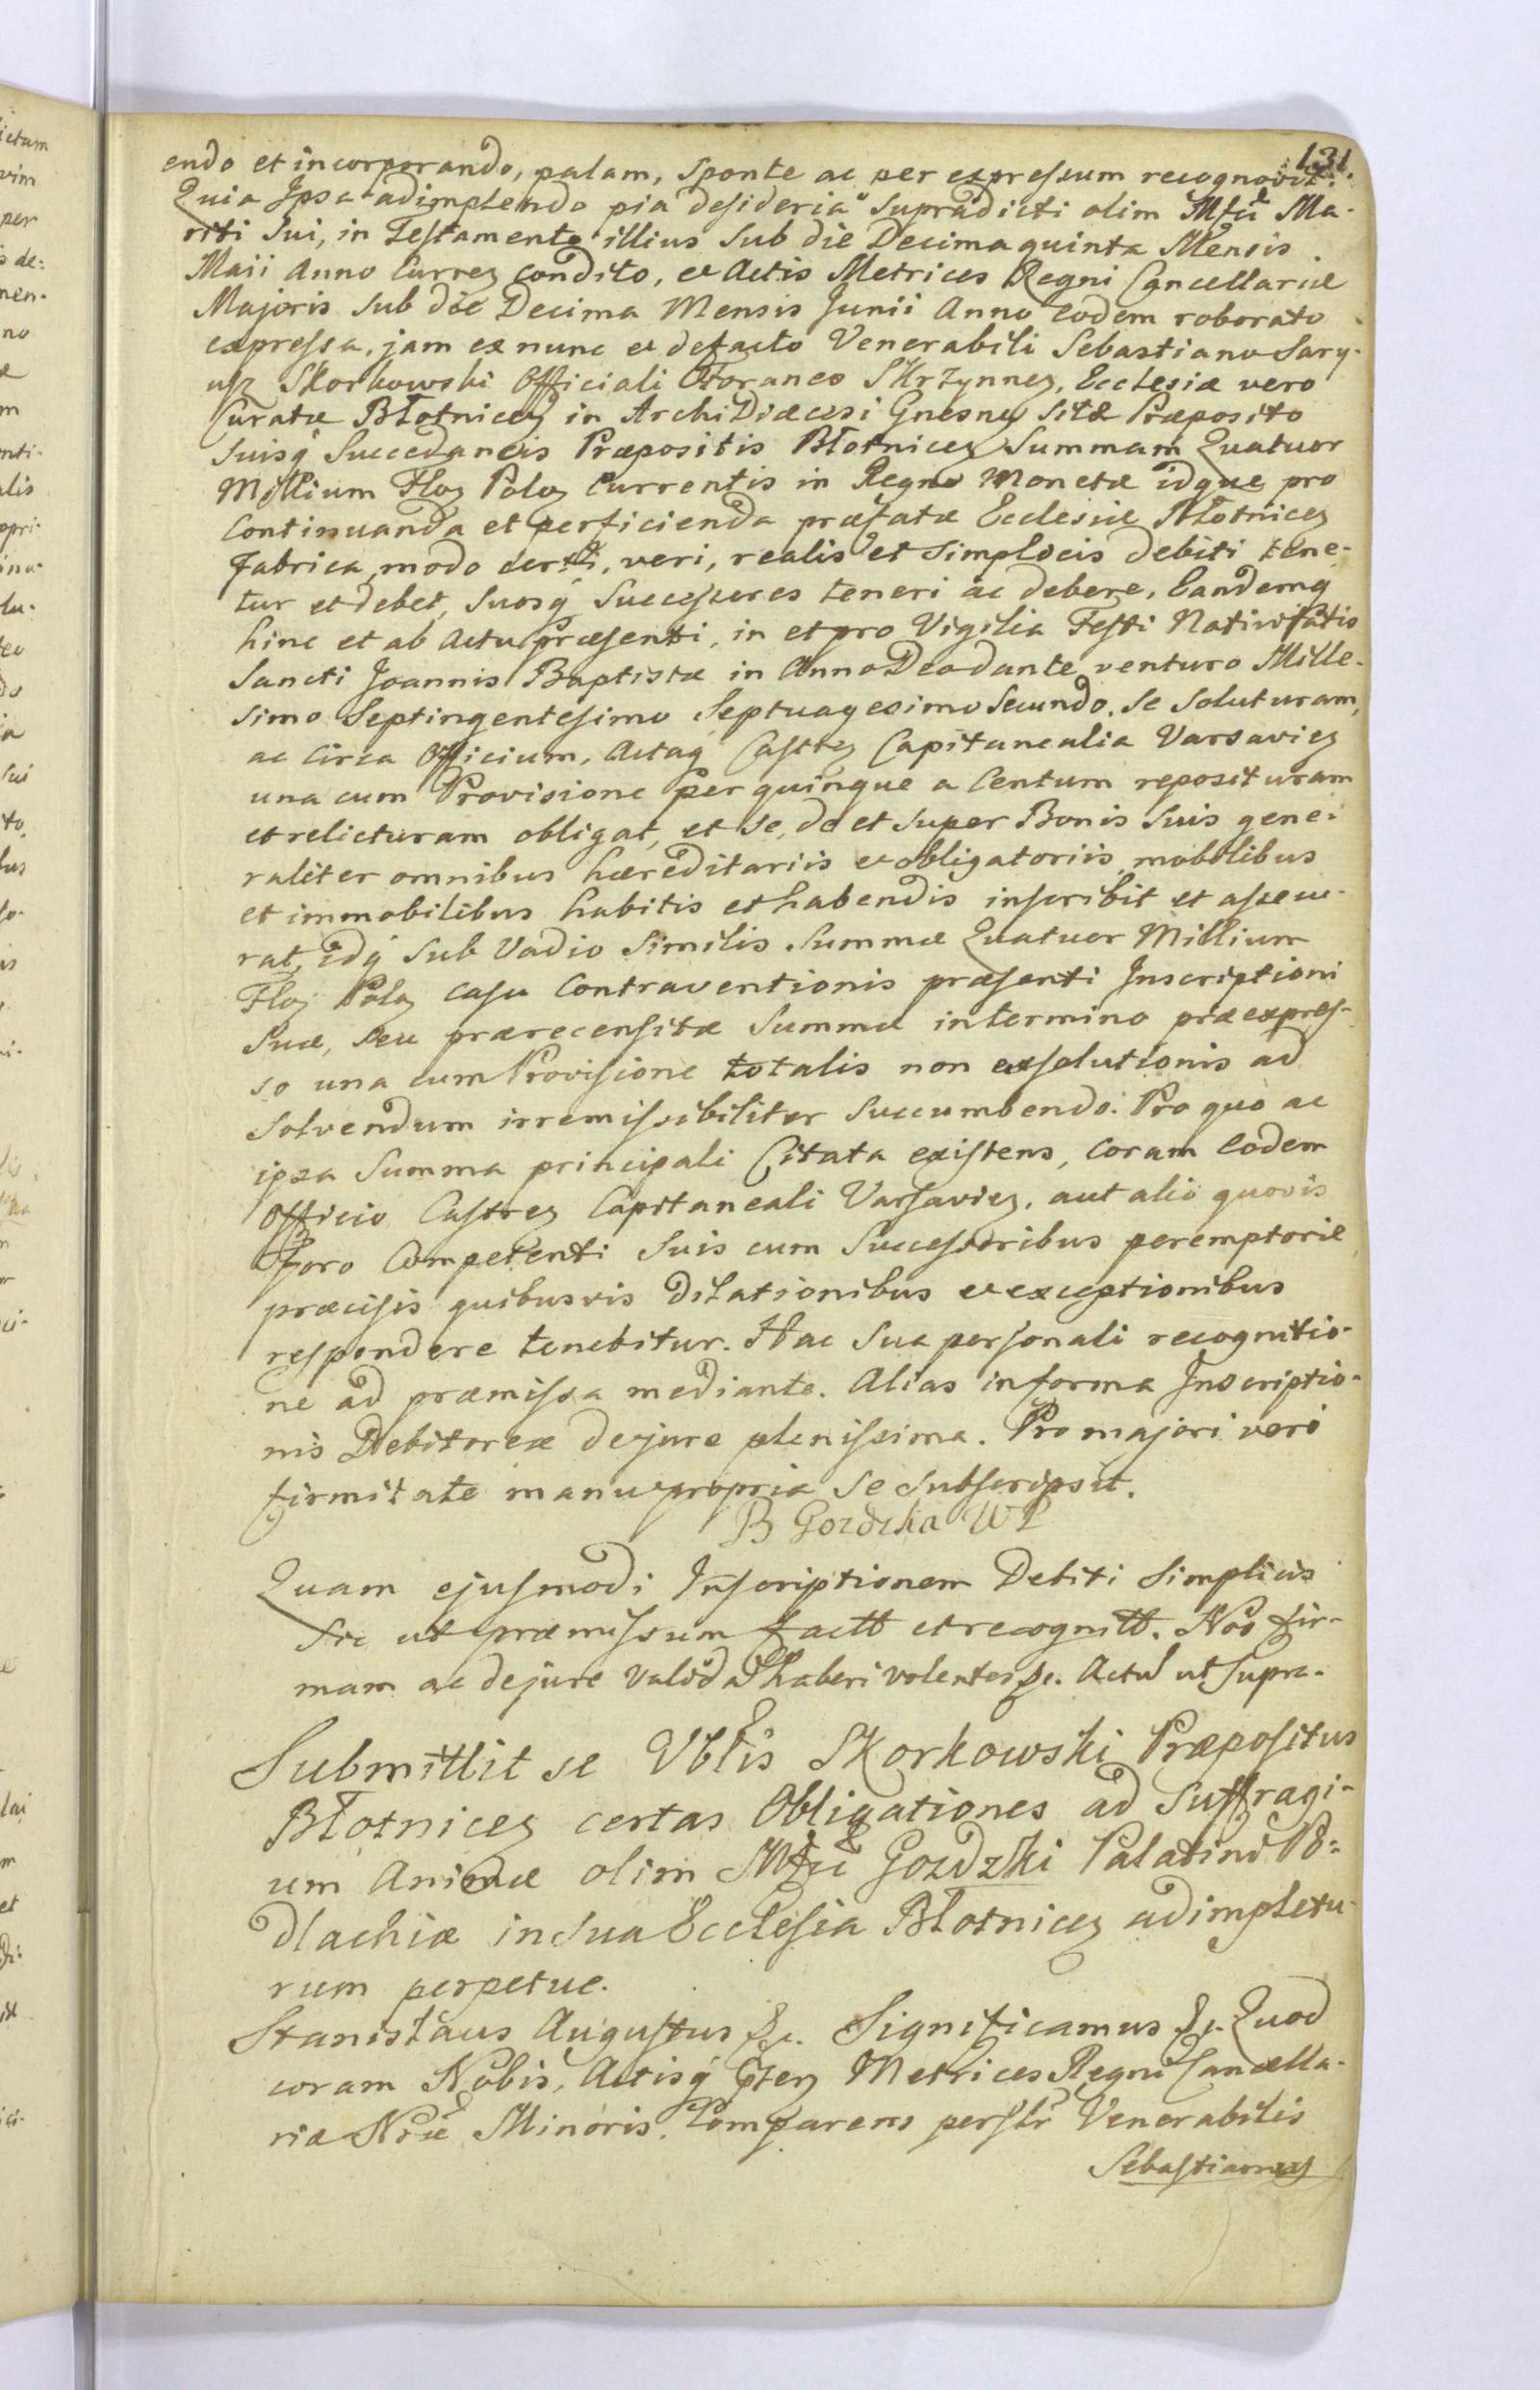 131
endo et incorporando, palam, sponte ac per expressum recognovit:
Quia Ipsa adimplendo pia desideria supradicti olim Mfci Ma-
riti Sui, in Testamento illius sub die Decima quinta Mensis
Maii Anno Curren condito, et Actis Metrices Regni Cancellariæ
Majoris sub die Decima Mensis Junii Anno eodem roborato
expressa, jam ex nunc et defacto Venerabili Sebastiano Sary-
usz Skorkowski Officiali Foraneo Skrzynnen, Ecclesiæ vero
Curatæ Błotnicen in ArchiDiæcesi Gnesnen sitæ Præposito
suisq Succedaneis Præpositis Błotnicen Summam Quatuor
Millium Flon Polon Currentis in Regno Monetæ idque pro
Continuanda et perficienda præfatæ Ecclesiæ Błotnicen
fabrica, modo certi, veri, realis et simplicis debiti tene-
tur et debet, suosq Successores teneri ac debere, Eandemq
hinc et ab Actu præsenti, in et pro Vigilia Festi Nativitatis
Sancti Joannis Baptistæ in Anno Deo dante venturo Mille-
simo Septingentesimo Septuagesimo Secundo, se soluturam,
ac circa Officium, Actaq Castren Capitanealia Varsavien
una cum Provisione per quinque a Centum reposituram
et relicturam obligat, et se, de et super Bonis suis gene-
raliter omnibus hæreditariis et obligatoriis, mobilibus
et immobilibus habitis et habendis inscribit et assecu-
rat, idq sub Vadio similis Summæ Quatuor Millium
Flon Polon casu Contraventionis præsenti Inscriptioni
suæ, seu prærecensitæ Summæ in termino præexpres-
so una cum Provisione totalis non exsolutionis ad
solvendum irremissibiliter succumbendo. Pro quo ac
ipsa Summa principali Citata existens, coram eodem
Officio Castren Capitaneali Varsavien, aut alio quovis
Foro Competenti suis cum Successoribus peremptorie
præcisis quibusvis dilationibus et exceptionibus
respondere tenebitur. Hac sua personali recognitio-
ne ad præmissa mediante. Alias in forma Inscriptio-
nis Debitoreæ de jure plenissima. Pro majori vero
firmitate manu propria se subscripsit.
B Gozdzka WP
Quam ejusmodi Inscriptionem Debiti simplicis
sic ut præmissum factt et recognitt. Nos fir-
mam ac de jure validā haberi volentes &c. Actū ut supra.
Submittit se Vblis Skorkowski Præpositus
Błotnicen certas Obligationes ad suffragi-
um Animæ olim Mfci Gozdzki Palatini Po-
dlachiæ in sua Ecclesia Błotnicen adimpletu-
rum perpetue.
Stanislaus Augustus &c. Significamus &c. Quod
coram Nobis, Actisq pten Metrices Regni Cancella-
riæ Nræ Minoris. Comparens persltr Venerabilis
Sebastianus